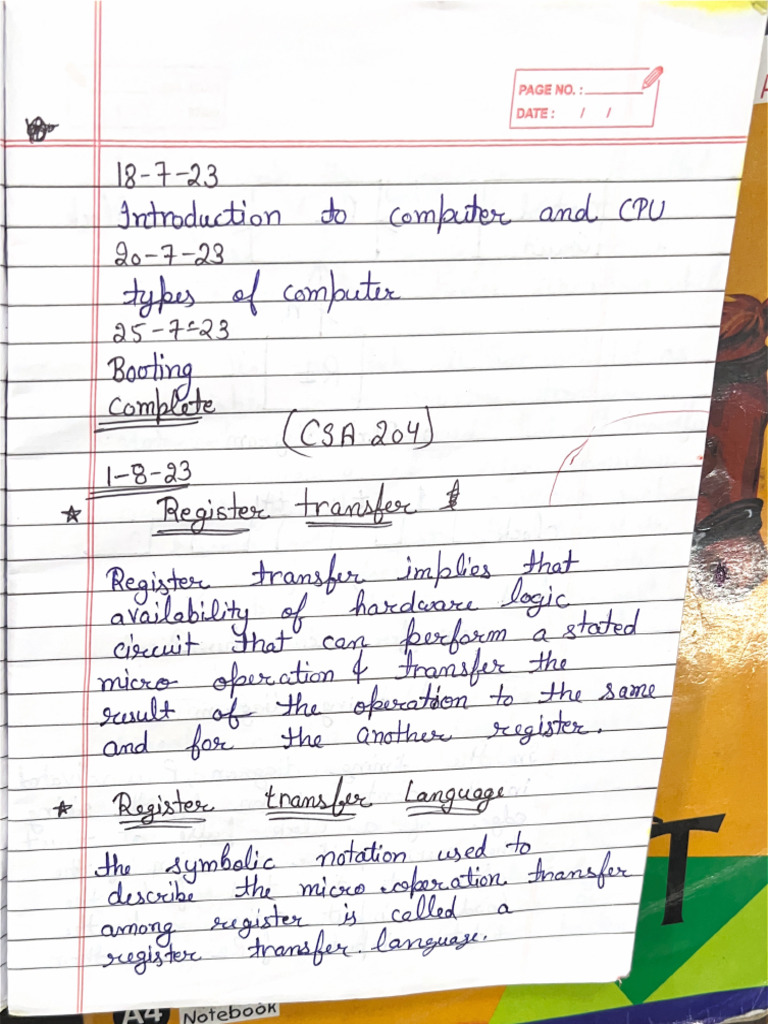 PAGE NO. :
DATE : / /
18-7-23
Introduction to computer and CPU
20-7-23
types of computer
25-7-23
Booting
Complete
(CSA 204)
1-8-23
* Register transfer
Register transfer implies that
availability of hardware logic
circuit that can perform a stated
micro operation & transfer the
result of the operation to the same
and for the another register.
* Register transfer Language
the symbolic notation used to
describe the micro operation transfer
among register is called a
register transfer language.
T
A4 Notebook